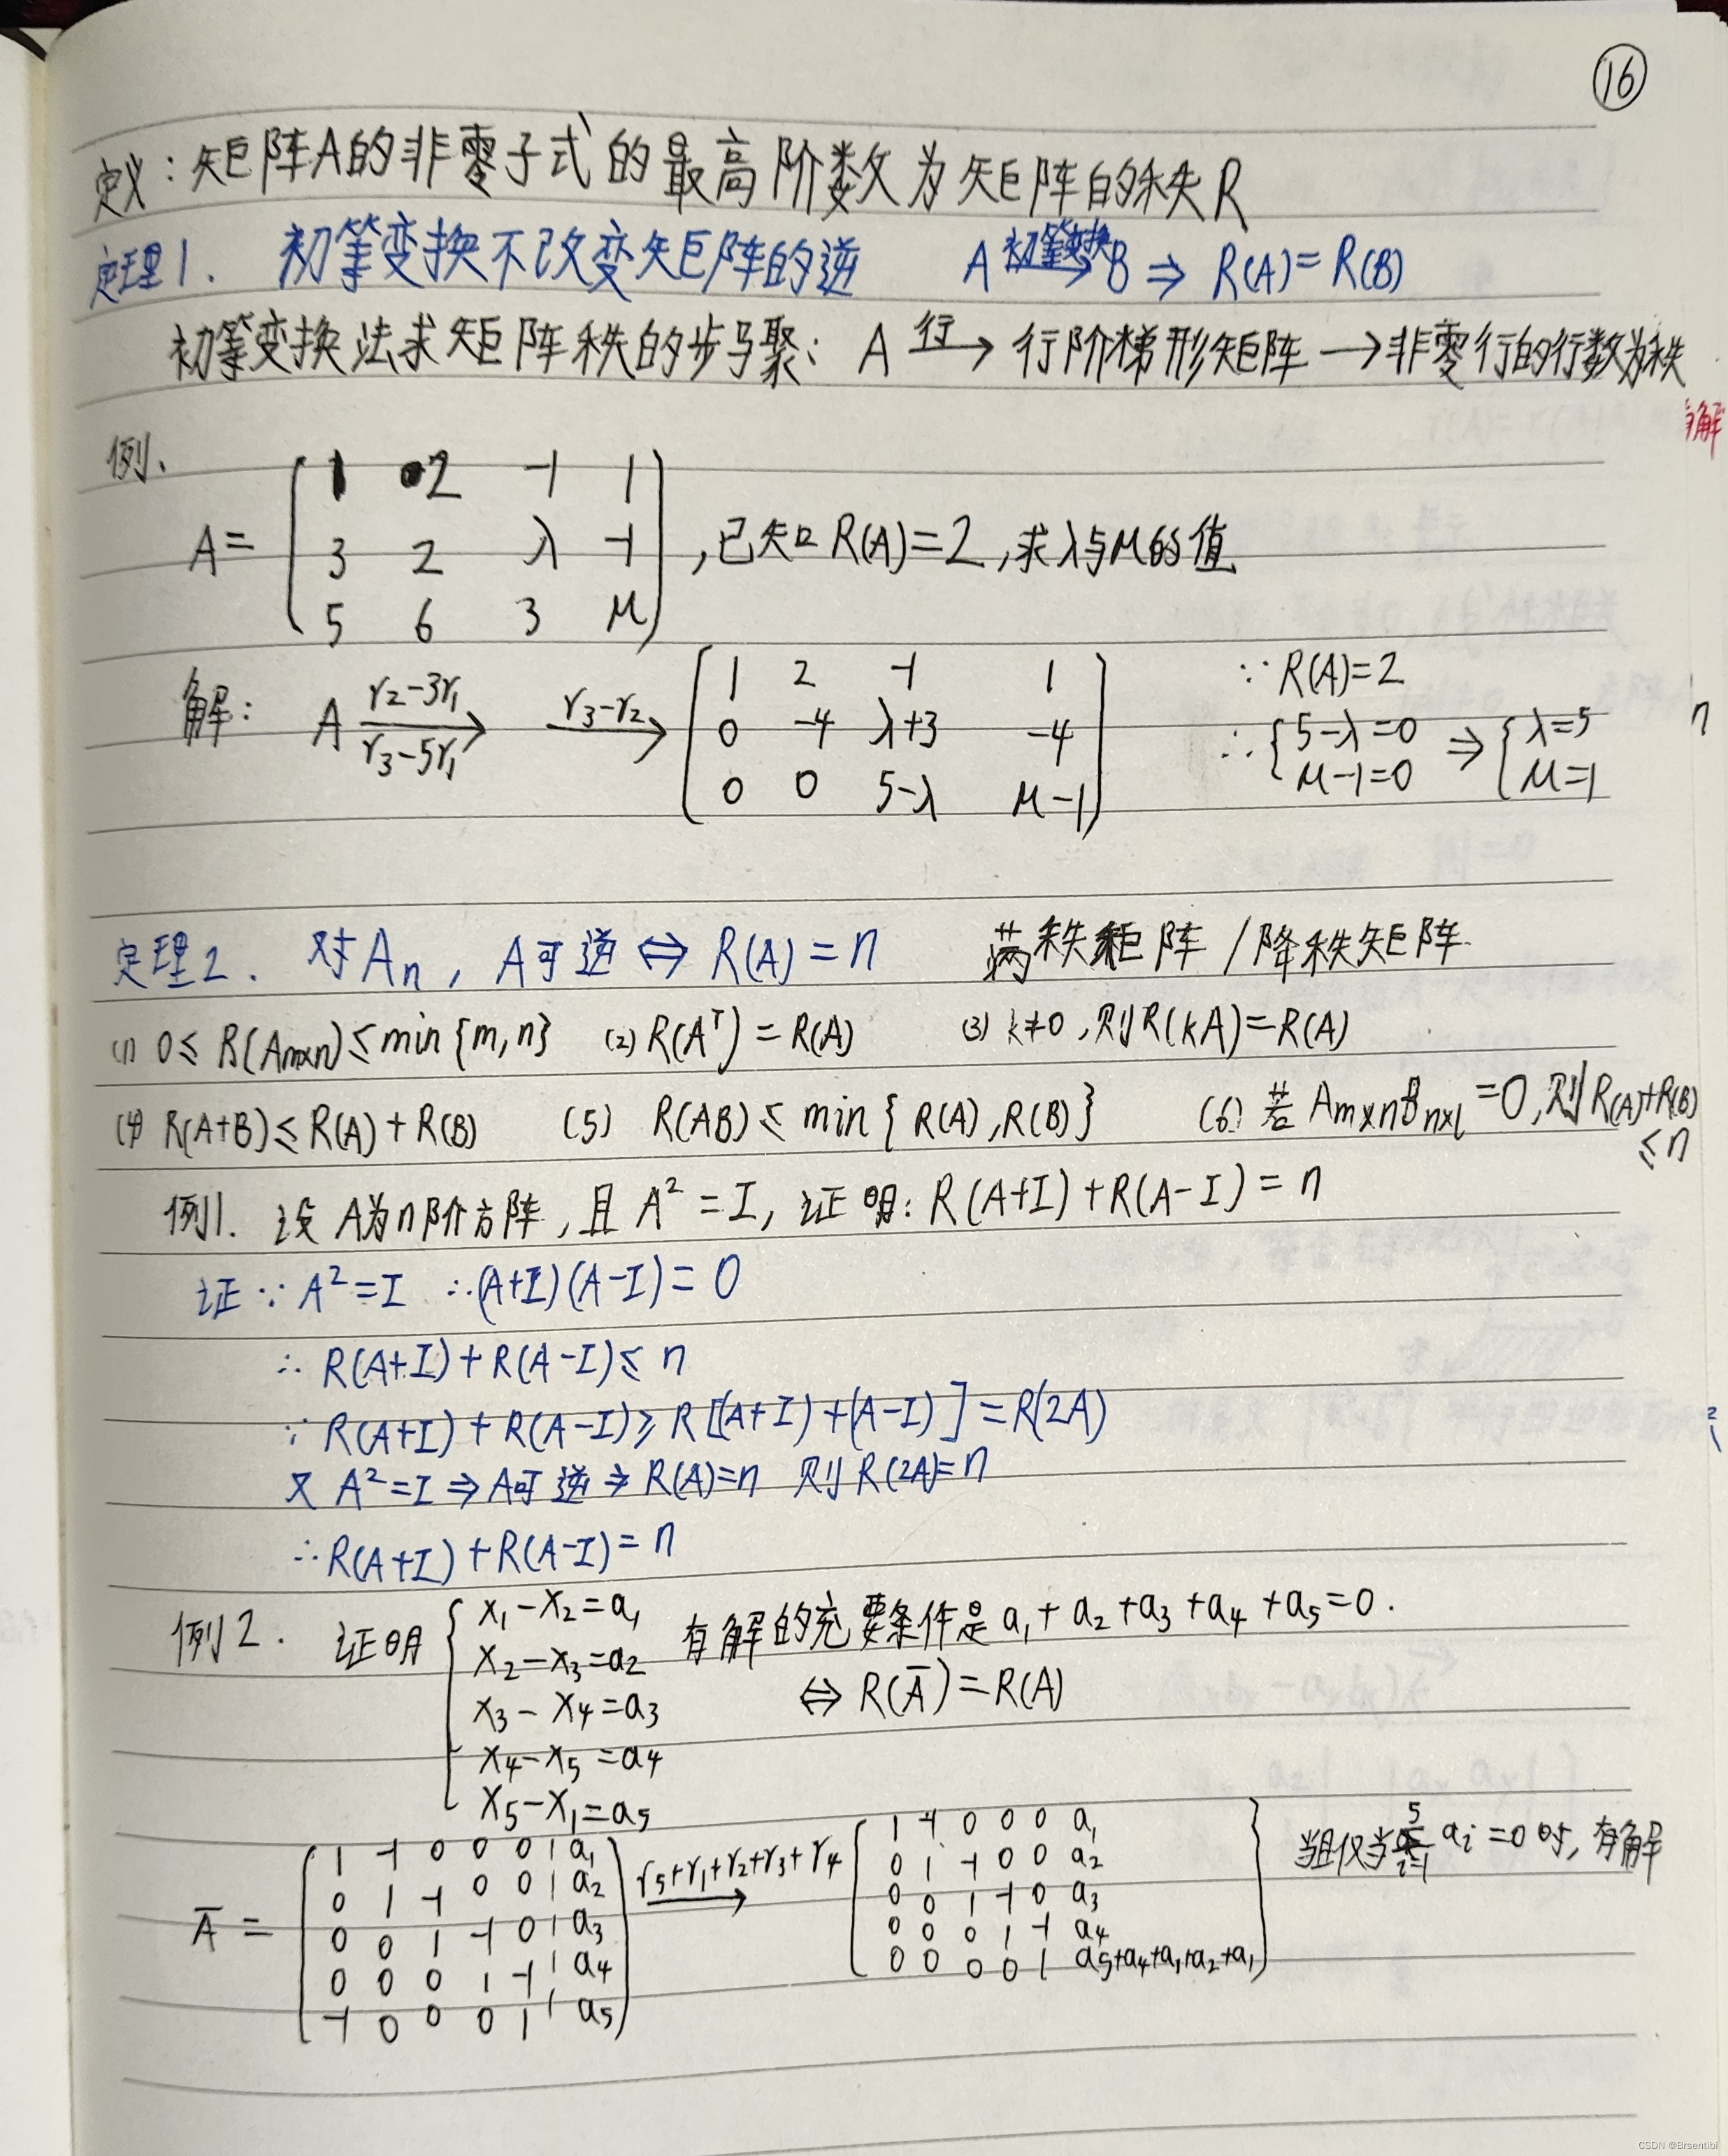 ⑯
定义：矩阵A的非零子式的最高阶数为矩阵的秩R
定理1. 初等变换不改变矩阵的逆 A 初等变换→ B ⇒ R(A)=R(B)
初等变换法求矩阵秩的步骤：A 行→ 行阶梯形矩阵 → 非零行的行数为秩
有解
例、
1 2 -1 1
A= 3 2 λ -1 ,已知R(A)=2,求λ与μ的值
5 6 3 μ
解： A r₂-3r₁ r₃-5r₁ → r₃-r₂ →
1 2 -1 1 ∵R(A)=2
0 -4 λ+3 -4 ∴{5-λ=0 ⇒ {λ=5
0 0 5-λ μ-1 μ-1=0 μ=1
n
定理2. 对Aₙ, A可逆 ⇔ R(A)=n 满秩矩阵/降秩矩阵
(1) 0≤R(Am×n)≤min{m,n} (2) R(Aᵀ)=R(A) (3) k≠0,则R(kA)=R(A)
(4) R(A+B)≤R(A)+R(B) (5) R(AB)≤min{R(A),R(B)} (6) 若Am×nBn×l=0,则R(A)+R(B)
≤n
例1. 设A为n阶方阵,且A²=I,证明:R(A+I)+R(A-I)=n
证∵A²=I ∴(A+I)(A-I)=0
∴R(A+I)+R(A-I)≤n
∵R(A+I)+R(A-I)≥R[(A+I)+(A-I)]=R(2A)
又A²=I⇒A可逆⇒R(A)=n 则R(2A)=n
∴R(A+I)+R(A-I)=n
例2. 证明 { x₁-x₂=a₁ 有解的充要条件是a₁+a₂+a₃+a₄+a₅=0.
x₂-x₃=a₂
x₃-x₄=a₃ ⇔ R(Ā)=R(A)
x₄-x₅=a₄
x₅-x₁=a₅
Ā=
1 -1 0 0 0 | a₁
0 1 -1 0 0 | a₂
0 0 1 -1 0 | a₃
0 0 0 1 -1 | a₄
-1 0 0 0 1 | a₅
r₅+r₁+r₂+r₃+r₄ →
1 -1 0 0 0 a₁
0 1 -1 0 0 a₂
0 0 1 -1 0 a₃
0 0 0 1 -1 a₄
0 0 0 0 1 a₅+a₄+a₁+a₂+a₁
当且仅当 5 Σ i=1 aᵢ=0时,有解
CSDN @Brsentibi